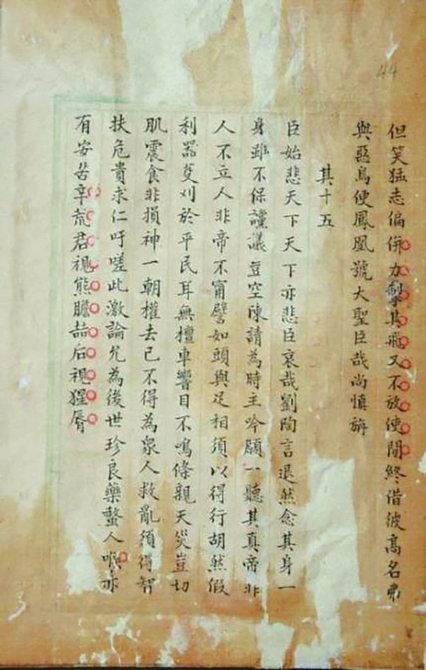 44
但笑猛志偏併力掣其飛又不放使閒終借彼高名弗
與惡鳥使鳳凰號大聖臣哉尚慎旃
其十五
臣始悲天下天下亦悲臣哀哉劉陶言退然念其身一
身雖不保讜議豈空陳請為時主吟願一聽其真帝非
人不立人非帝不甯譬如頭與足相須以得行胡然假
利器芟刈於平民耳無檀車響目不鳴條親天災豈切
肌震食非損神一朝權去已不得為眾人救亂須得智
扶危貴求仁吁嗟此激論允為後世珍良藥螫人喉亦
有安苦辛荒君視熊膽喆后視猩脣